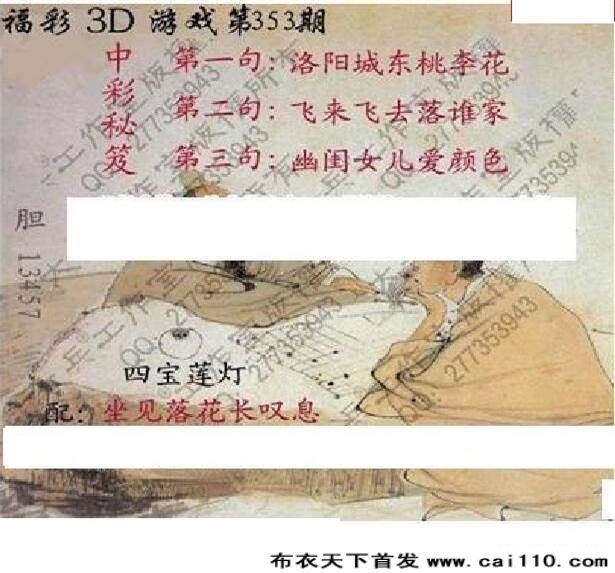 福彩 3D 游戏第353期
中彩秘笈
第一句：洛阳城东桃李花
第二句：飞来飞去落谁家
第三句：幽闺女儿爱颜色
胆 13457
四宝莲灯
配：坐见落花长叹息
布衣天下首发 www.cai110.com